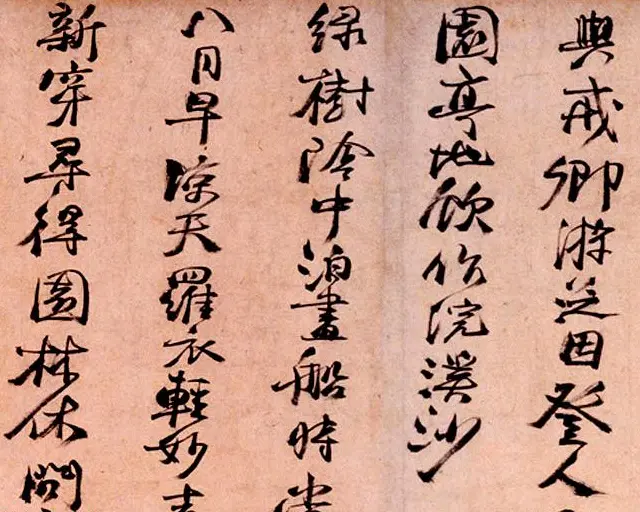 與戒卿游芝田登人
園亭地顧作浣溪沙
綠樹陰中泊畫船時當
八月早涼天羅衣輕妙
新穿尋得園林休問